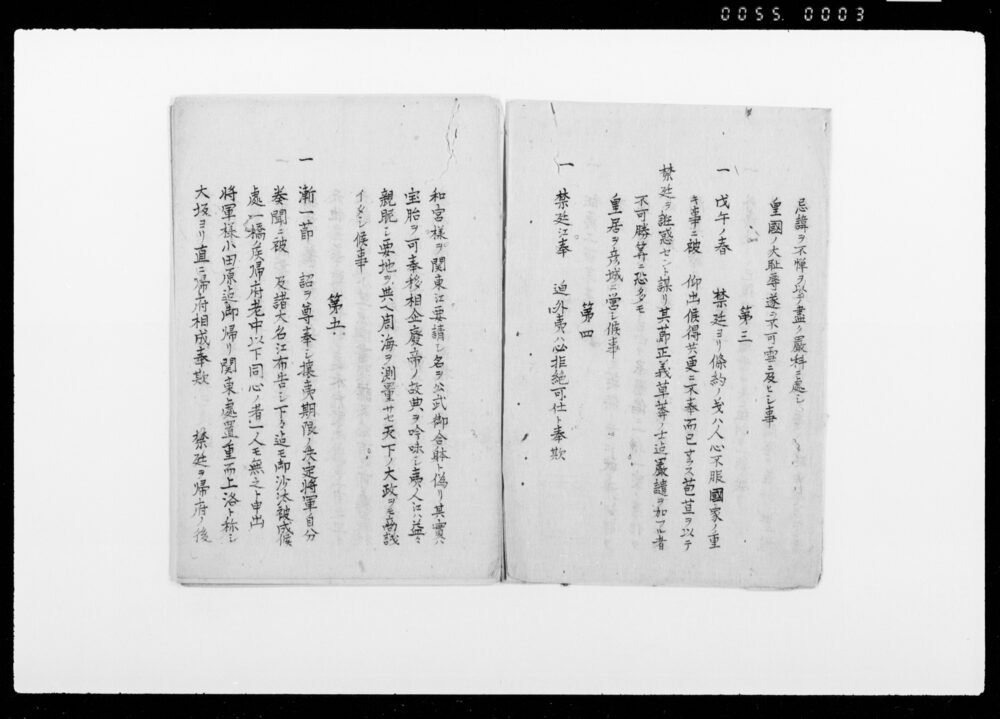 0055.0003
忌諱ヲ不憚ヲ以テ盡ク嚴科ニ處シ
皇國ノ大耻辱遂ニ不可雪ニ及ヒシ事
第三
一 戊午ノ春 禁廷ヨリ條約ノ義ハ人心不服國家ノ重
キ事ニ被 仰出候得共更ニ不奉而已ナラス苞苴ヲ以テ
禁廷ヲ誑惑セント謀リ其節正義草莽ノ士迠嚴譴ヲ加フル者
不可勝算ニ恐多モ
皇居ヲ彦城ニ営シ候事
第四
一 禁廷江奉 迫外夷ハ必拒絶可仕ト奉欺
和宮様ヲ関東江要請シ名ヲ公武御合躰ト偽リ其實ハ
宝胎ヲ可奉移相企廢帝ノ故典ヲ吟味シ夷人江ハ益々
親眤シ要地ヲ與ヘ周海ヲ測量サセ天下ノ大政ヲモ商議
イタシ候事
第五
一 漸一節 詔ヲ尊奉シ攘夷期限ノ矣定將軍自分
奏聞ニ被 及諸大名江布告シ下々迠モ御沙汰被成候
處一橋矦帰府老中以下同心ノ者一人モ無之ト申出
将軍様小田原迠御帰リ関東處置重而上洛ト称シ
大坂ヨリ直ニ帰府相成奉欺 禁廷ヲ帰府ノ後